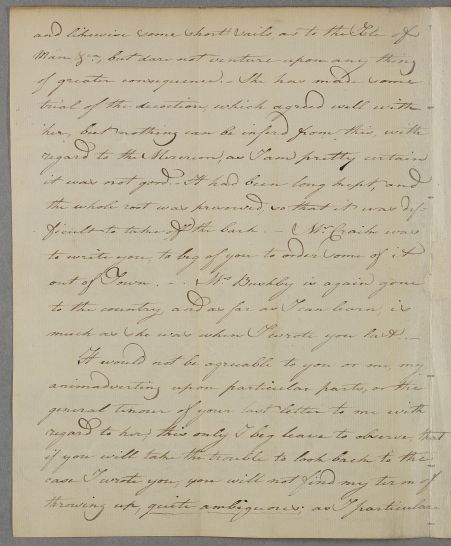 and likewise some short sails, as to the Isle of
Man &ca, but dare not venture upon any thing
of greater consequence.- She has made some
trial of the decoction, which agreed well with
her, but nothing can be inferd from this, with
regard to the Mezerion, as I am pretty certain
it was not good.- It had been long kept, and
the whole root was preserved, so that it was dif-
ficult to take off the bark. - Mr Craik was
to write you, to beg of you to order some of it
out of Town. - . Mrs Bushby is again gone
to the country, and as far as I can learn, is
much as she was when I wrote you last.-
It would not be agreeable to you or me, my
animadverting upon particular parts, or the
general tenour of your last letter to me with
regard to her, this only I beg leave to observe, that
if you will take the trouble to look back to the
case I wrote you, you will not find my term of
throwing up, quite ambiguous; as I particular